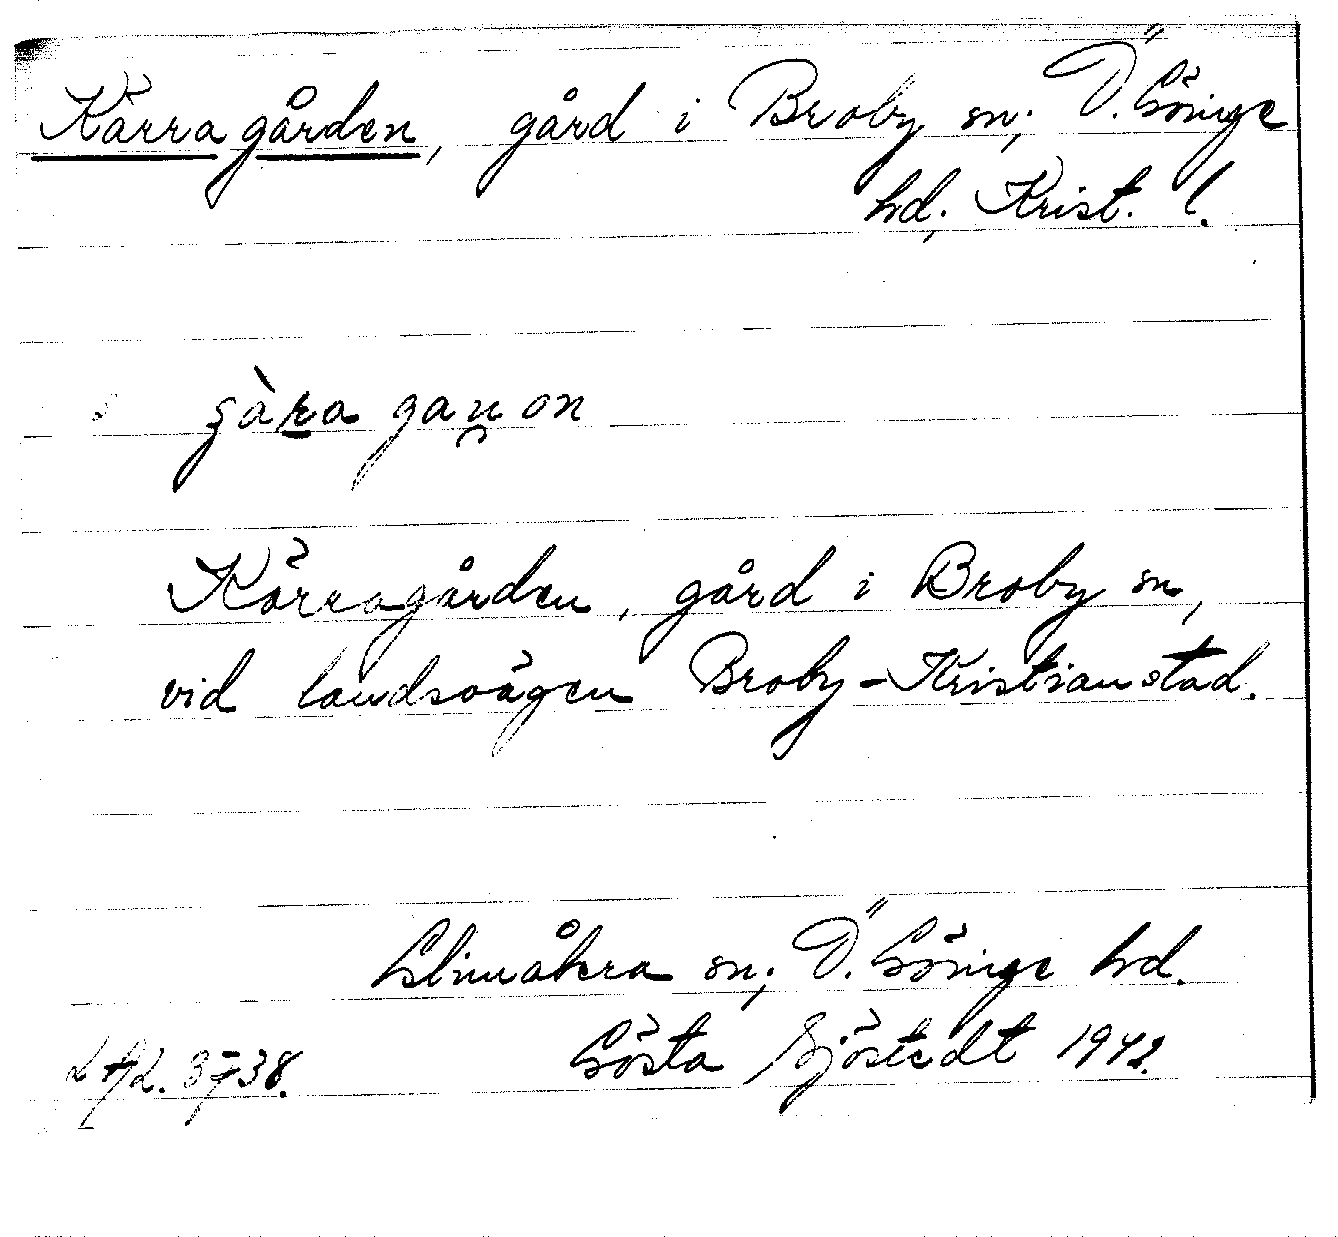 Kärragården, gård i Broby sn, Ö. Göinge
hd, Krist. l.
Kärragården, gård i Broby sn,
vid landsvägen Broby-Kristianstad.
Glimåkra sn, Ö. Göinge hd.
Gösta Sjöstedt 1942.